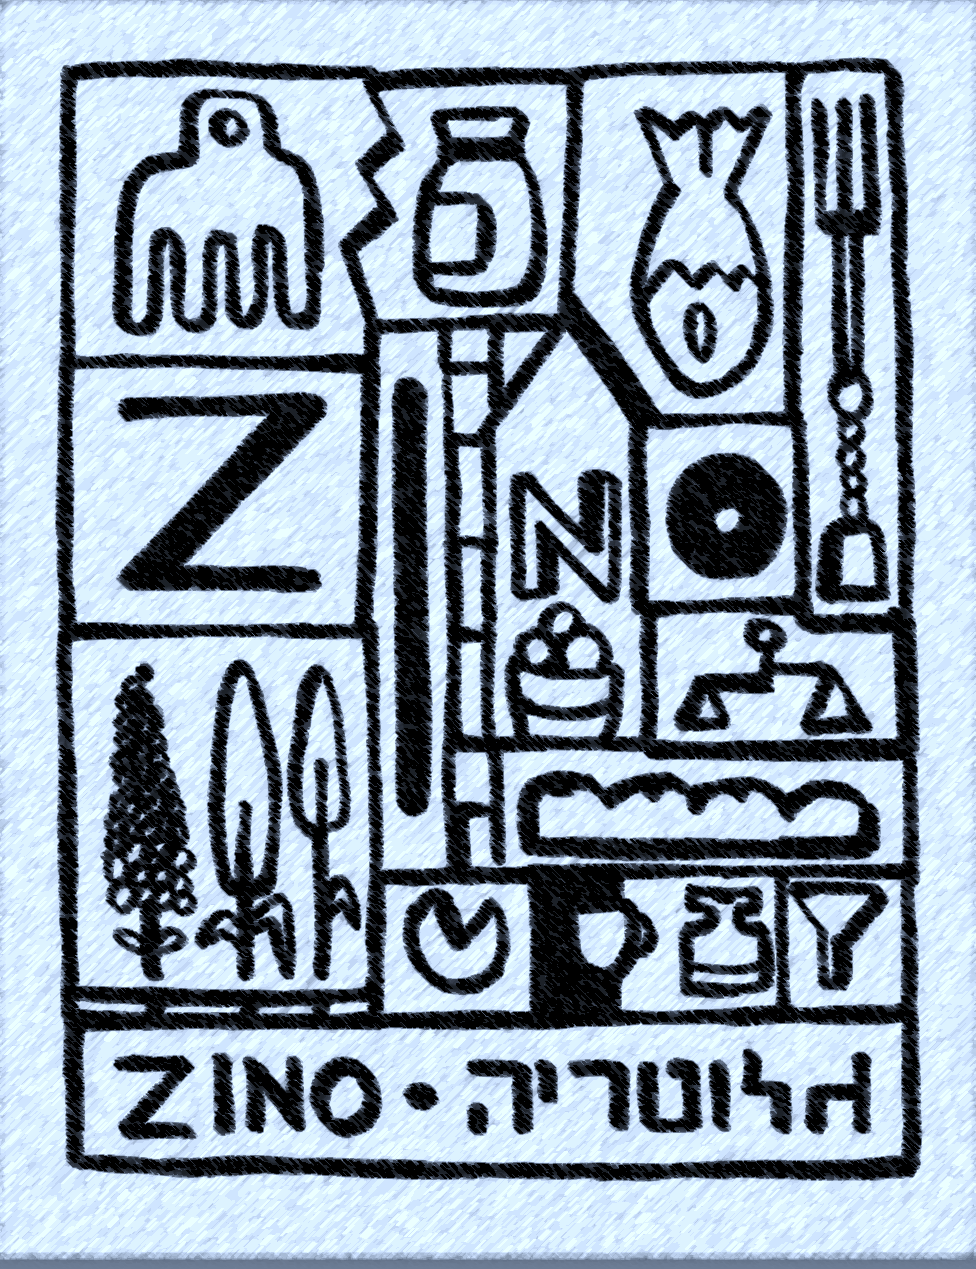 Z
N
ZINO • אלוטריה